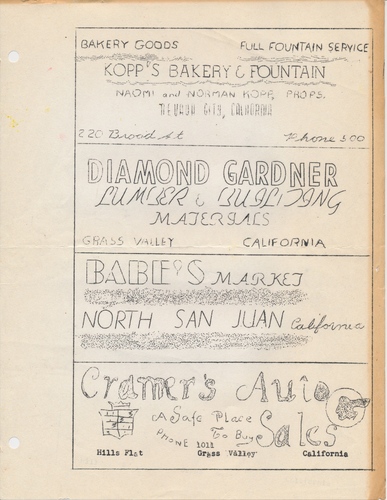 BAKERY GOODS FULL FOUNTAIN SERVICE
KOPP'S BAKERY & FOUNTAIN
NAOMI and NORMAN KOPP, PROPS.
NEVADA CITY, CALIFORNIA
220 Broad St Phone 500
DIAMOND GARDNER
LUMBER & BUILDING
MATERIALS
GRASS VALLEY CALIFORNIA
BABE'S MARKET
NORTH SAN JUAN California
Cramer's Auto
Sales
A Safe Place
To Buy
PHONE 1011
Hills Flat Grass Valley California